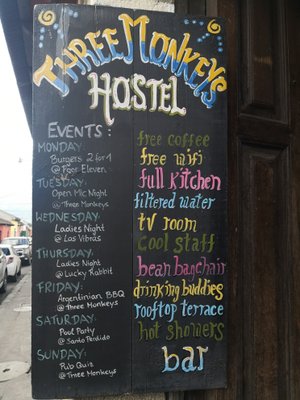 Three Monkeys
Hostel
Events:
Monday:
Burgers 2 for 1
@ Eleven
Tuesday:
Open Mic Night
@ Three Monkeys
Wednesday:
Ladies Night
@ Las Vibras
Thursday:
Ladies Night
@ Lucky Rabbit
Friday:
Argentinian BBQ
@ Three Monkeys
Saturday:
Pool Party
@ Santo Perdido
Sunday:
Pub Quiz
@ Three Monkeys
free coffee
free wifi
full kitchen
filtered water
tv room
cool staff
bean bagchair
drinking buddies
rooftop terrace
hot showers
bar